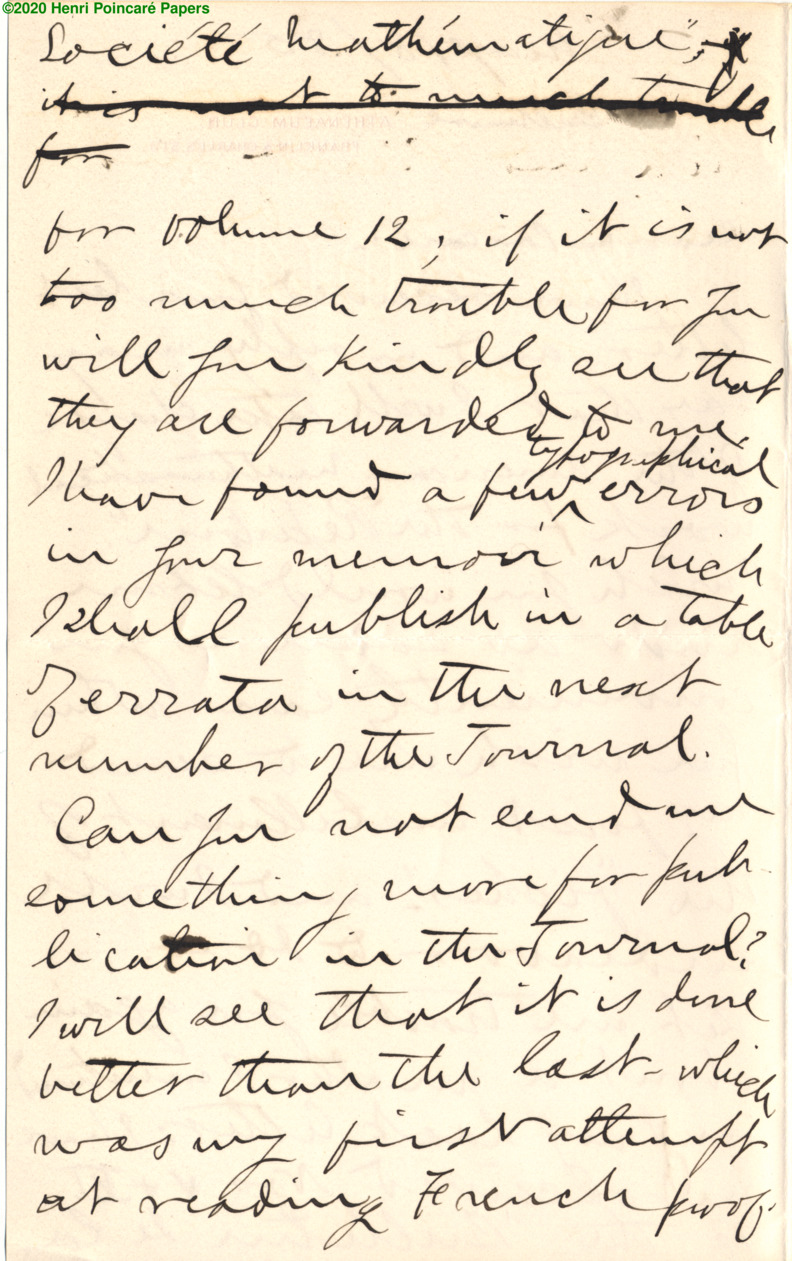 ©2020 Henri Poincaré Papers
Société Mathématique",
it is not to much trouble
for
for volume 12; if it is not
too much trouble for you
will you kindly see that
they are forwarded to me.
typographical
I have found a few ‸ errors
in your memoir which
I shall publish in a table
of errata in the next
number of the Journal.
Can you not send me
something more for pub-
lication in the Journal?
I will see that it is done
better than the last - which
was my first attempt
at reading French proof.